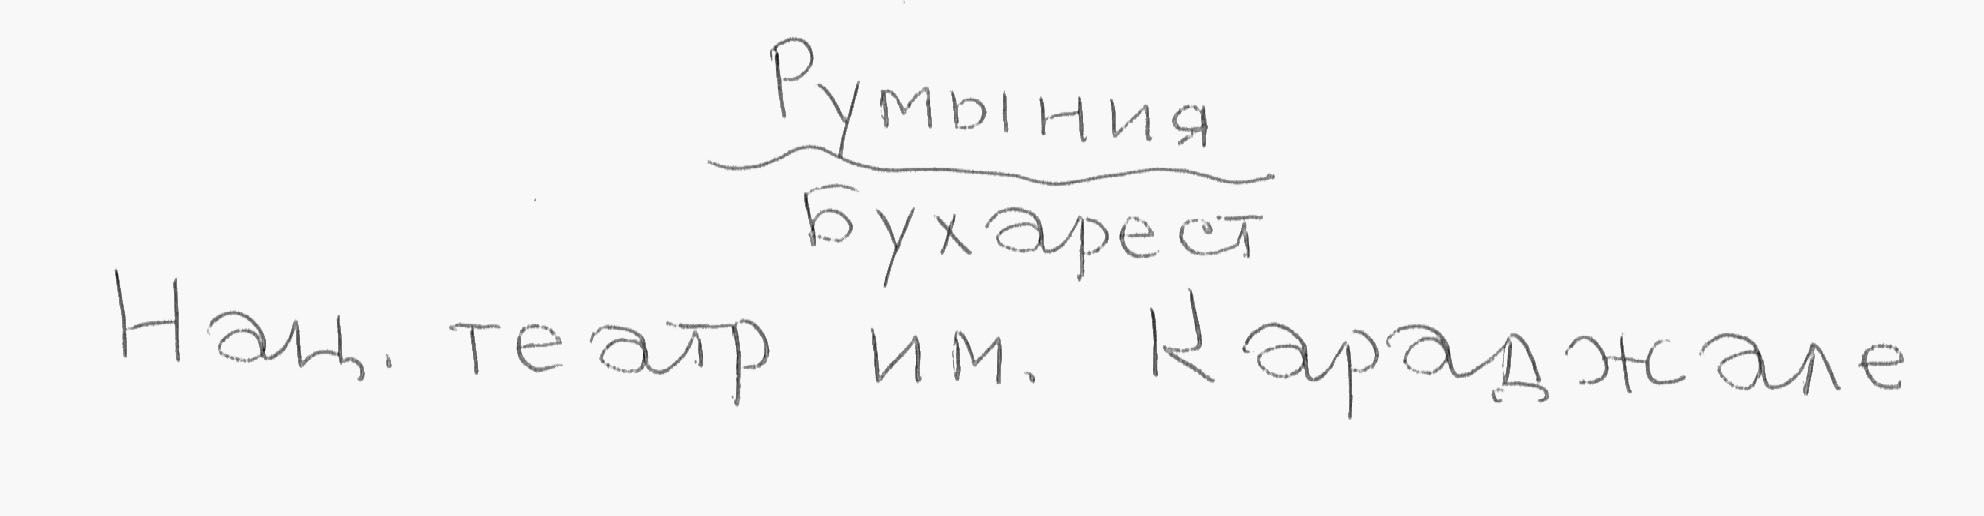 Румыния
Бухарест
Нац. театр им. Караджале